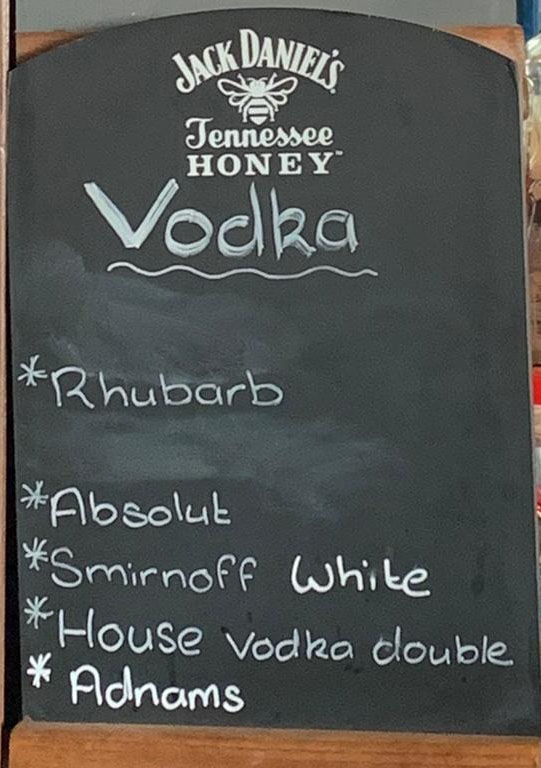 JACK DANIEL'S
Tennessee
HONEY™
Vodka
*Rhubarb
*Absolut
*Smirnoff White
*House Vodka double
* Adnams